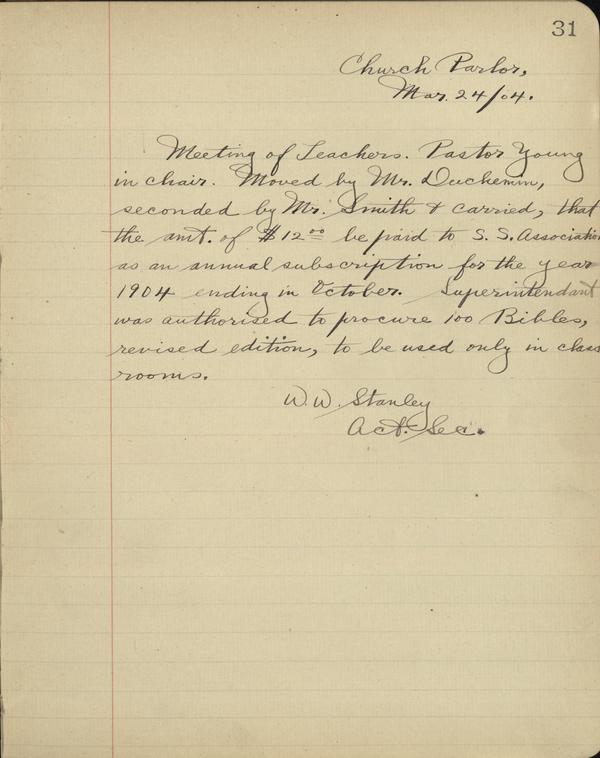 31
Church Parlor,
Mar. 24/04.
Meeting of Teachers. Pastor Young
in chair. Moved by Mr. Duchemin,
seconded by Mr. Smith & carried, that
the amt. of $12 00 be paid to S. S. Association
as an annual subscription for the year
1904 ending in October. Superintendant
was authorised to procure 100 Bibles,
revised edition, to be used only in class
rooms.
W. W. Stanley
Act. Sec.